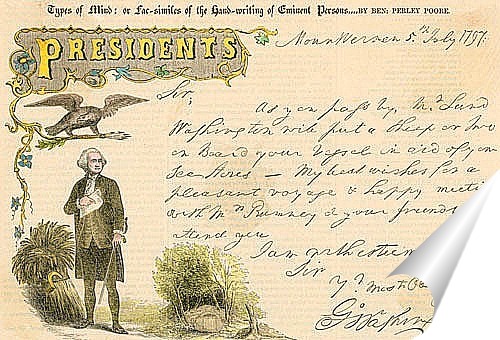 Types of Mind: or Fac-similes of the Hand-writing of Eminent Persons....BY BEN: PERLEY POORE.
PRESIDENTS
Mount Vernon 5.th July
Sir,
As you pass by, Mr. Lund
Washington will put a Sheep or two
on Board your Vessel in aid of your
Sea Stores — My best wishes for a
pleasant voyage & happy meeti
with Mrs Rumney & your friends
attend you
I am with esteem
Sir
Yr Most Obe
Go Washin